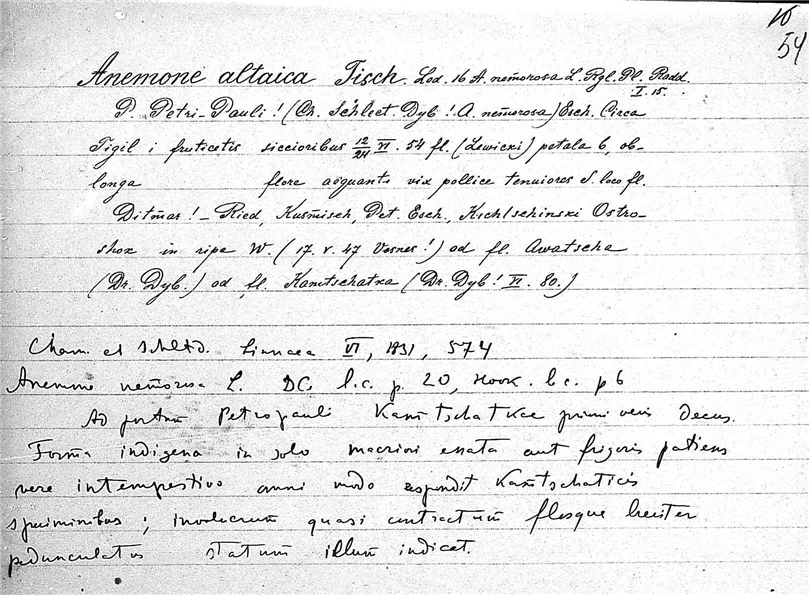 10
54
Anemone altaica Fisch. Led. 16 A. nem̄orosa L. Rgl. Pl. Radd.
I. 15.
P. Petri-Pauli! (Ch. Schlect. Dyb! A. nem̄orosa) Esch. Circa
Tigil i fruticetis siccioribus 12/24 VI. 54 fl. (Lewicki) petala 6, ob-
longa flore aequante vix pollice tenuiores S. loco fl.
Ditmar! - Ried, Kusm̄isch, Pet. Esch., Kschlschinski Ostro-
shok in ripa W. (17. V. 47 Vosnes!) od fl. Awatscha
(Dr. Dyb.) od fl. Kam̄tschatka (Dr. Dyb! VI. 80.)
Cham. et Schltd. Linnaea VI, 1831, 574
Anemone nem̄orosa L. DC l.c. p. 20, Hook. l.c. p 6
Ad portum Petropauli Kam̄tschatkae primi veris decus.
Form̄a indigena in solo macriori enata aut frigoris patiens
vere intempestivo anni modo respondit Kam̄tschaticis
speciminibus; involucrum quasi contractum flosque breviter
pedunculatus statum illum indicat.